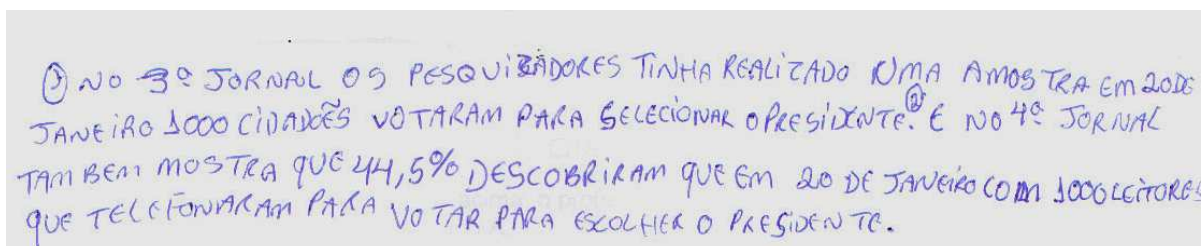 ① NO 3º JORNAL OS PESQUIZADORES TINHA REALIZADO UMA AMOSTRA EM 20 DE
JANEIRO 1000 CIDADÕES VOTARAM PARA SELECIONAR O PRESIDENTE. ② E NO 4º JORNAL
TAMBEM MOSTRA QUE 44,5% DESCOBRIRAM QUE EM 20 DE JANEIRO COM 1000 LEITORES
QUE TELEFONARAM PARA VOTAR PARA ESCOLHER O PRESIDENTE.